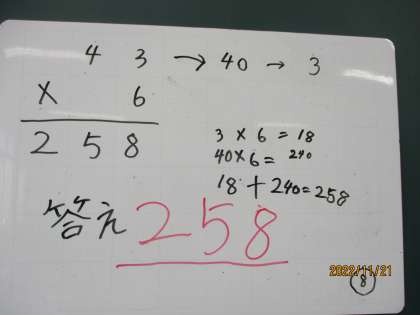 4 3 → 40 → 3
× 6
2 5 8
3 × 6 = 18
40×6= 240
18+240=258
答え 258
2022/11/21
8